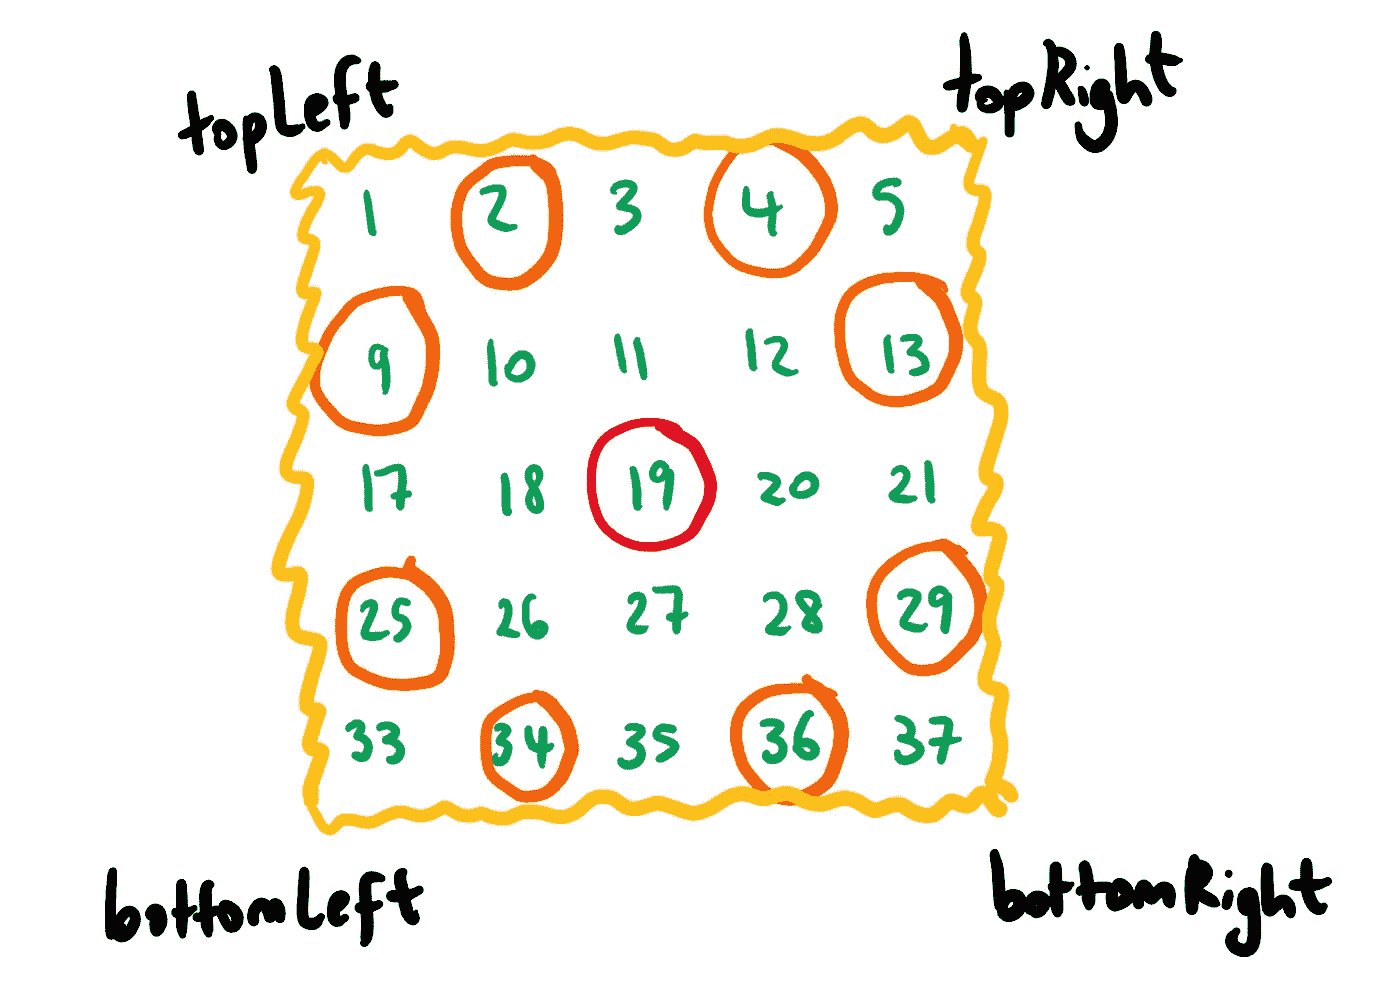 topLeft topRight
1 2 3 4 5
9 10 11 12 13
17 18 19 20 21
25 26 27 28 29
33 34 35 36 37
bottomLeft bottomRight